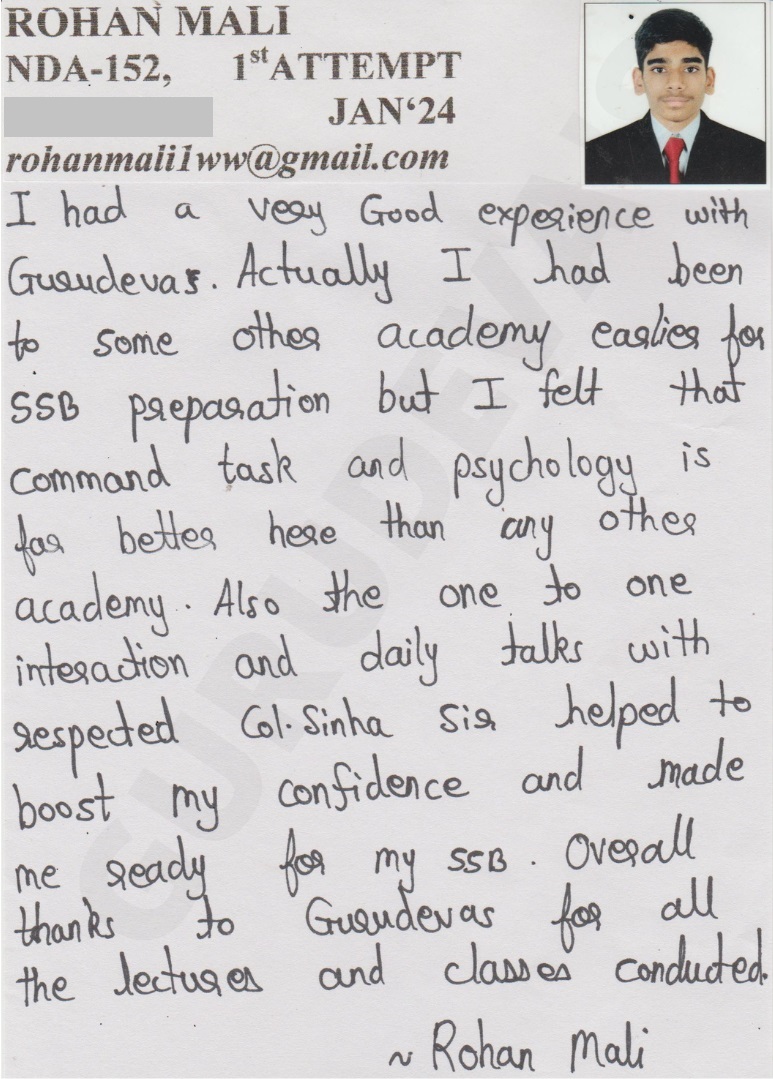 ROHAN MALI
NDA-152, 1st ATTEMPT
JAN‘24
rohanmali1ww@gmail.com
I had a very Good experience with
Gurudevas. Actually I had been
to some other academy earlier for
SSB preparation but I felt that
command task and psychology is
far better here than any other
academy. Also the one to one
interaction and daily talks with
respected Col. Sinha Sir helped to
boost my confidence and made
me ready for my SSB. Overall
thanks to Gurudevas for all
the lectures and classes conducted.
~ Rohan Mali
GURUDEVAS